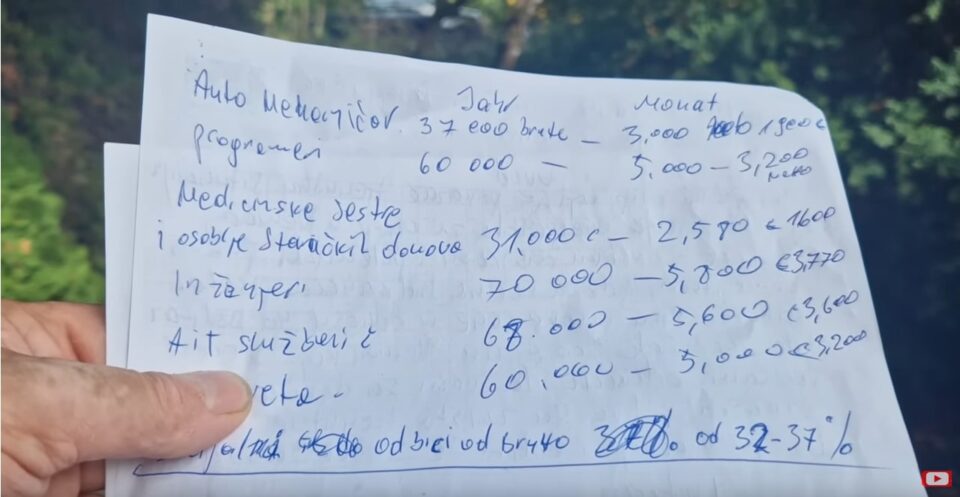 Jahr Monat
Auto Mehaničar. 37 000 bruto – 3,000 1900 €
programeri 60 000 – 5.000 – 3,200
neto
Medicinske sestre
i osoblje Staračkih domova 31.000 € – 2,580 € 1600
Inžanjeri 70 000 – 5,800 € 3,770
Ait službenič 68.000 – 5,600 € 3,600
60.000 – 5,000 € 3,200
odbici od bruto od 32-37%